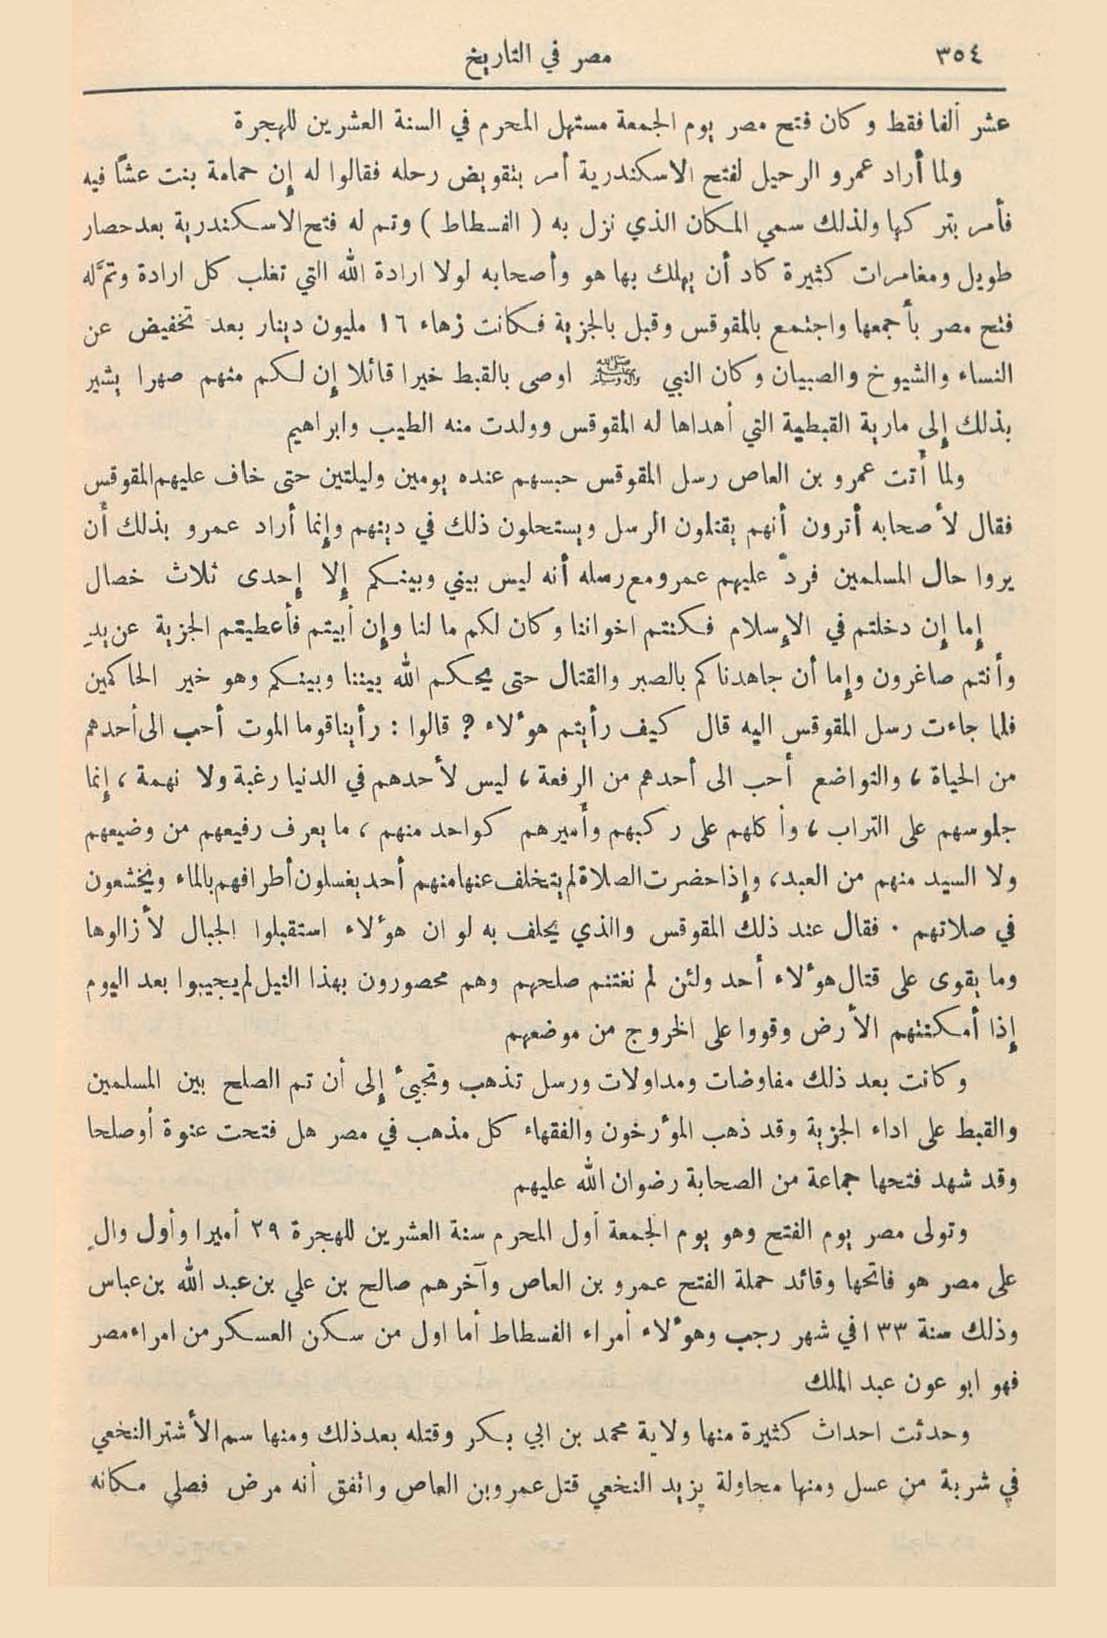 ٣٥٤
مصر في التاريخ
عشر ألفا فقط وكان فتح مصر يوم الجمعة مستهل المحرم في السنة العشرين للهجرة
ولما أراد عمرو الرحيل لفتح الاسكندرية أمر بتقويض رحله فقالوا له إن حمامة بنت عشًا فيه
فأمر بتركها ولذلك سمي المكان الذي نزل به ( الفسطاط ) وتم له فتح الاسكندرية بعد حصار
طويل ومغامرات كثيرة كاد أن يهلك بها هو وأصحابه لولا ارادة الله التي تغلب كل ارادة وتمَّ له
فتح مصر بأجمعها واجتمع بالمقوقس وقبل بالجزية فكانت زهاء ١٦ مليون دينار بعد تخفيض عن
النساء والشيوخ والصبيان وكان النبي ﷺ اوصى بالقبط خيرا قائلا إن لكم منهم صهرا يشير
بذلك إلى مارية القبطية التي أهداها له المقوقس وولدت منه الطيب وابراهيم
ولما أتت عمرو بن العاص رسل المقوقس حبسهم عنده يومين وليلتين حتى خاف عليهم المقوقس
فقال لأصحابه أترون أنهم يقتلون الرسل ويستحلون ذلك في دينهم وإنما أراد عمرو بذلك أن
يروا حال المسلمين فردّ عليهم عمرو مع رسله أنه ليس بيني وبينكم إلا إحدى ثلاث خصال
إما إن دخلتم في الإسلام فكنتم اخواننا وكان لكم ما لنا وإن أبيتم فأعطيتم الجزية عن يدٍ
وأنتم صاغرون وإما أن جاهدناكم بالصبر والقتال حتى يحكم الله بيننا وبينكم وهو خير الحاكمين
فلما جاءت رسل المقوقس اليه قال كيف رأيتم هؤلاء ؟ قالوا : رأينا قوما الموت أحب الى أحدهم
من الحياة ، والتواضع أحب الى أحدهم من الرفعة ، ليس لأحدهم في الدنيا رغبة ولا نهمة ، إنما
جلوسهم على التراب ، وأكلهم على ركبهم وأميرهم كواحد منهم ، ما يعرف رفيعهم من وضيعهم
ولا السيد منهم من العبد، وإذا حضرت الصلاة لم يتخلف عنها منهم أحد يغسلون أطرافهم بالماء ويخشعون
في صلاتهم . فقال عند ذلك المقوقس والذي يحلف به لو ان هؤلاء استقبلوا الجبال لأزالوها
وما يقوى على قتال هؤلاء أحد ولئن لم نغتنم صلحهم وهم محصورون بهذا النيل لم يجيبوا بعد اليوم
إذا أمكنتهم الأرض وقووا على الخروج من موضعهم
وكانت بعد ذلك مفاوضات ومداولات ورسل تذهب وتجيئ إلى أن تم الصلح بين المسلمين
والقبط على اداء الجزية وقد ذهب المؤرخون والفقهاء كل مذهب في مصر هل فتحت عنوة أو صلحا
وقد شهد فتحها جماعة من الصحابة رضوان الله عليهم
وتولى مصر يوم الفتح وهو يوم الجمعة أول المحرم سنة العشرين للهجرة ٢٩ أميرا وأول والٍ
على مصر هو فاتحها وقائد حملة الفتح عمرو بن العاص وآخرهم صالح بن علي بن عبد الله بن عباس
وذلك سنة ١٣٣ في شهر رجب وهؤلاء أمراء الفسطاط أما اول من سكن العسكر من امراء مصر
فهو ابو عون عبد الملك
وحدثت احداث كثيرة منها ولاية محمد بن ابي بكر وقتله بعد ذلك ومنها سم الأشتر النخعي
في شربة من عسل ومنها محاولة يزيد النخعي قتل عمرو بن العاص واتفق أنه مرض فصلى مكانه